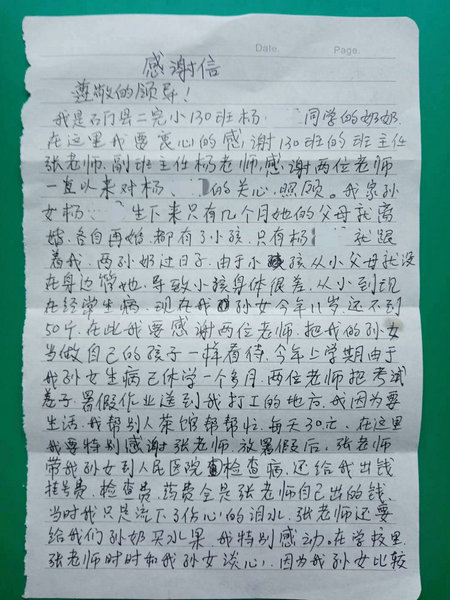 Date.
Page.
感谢信
尊敬的领导!
我是石门县二完小130班杨 同学的奶奶.
在这里我要衷心的感谢130班的班主任
张老师.副班主任杨老师,感谢两位老师
一直以来对杨、 的关心.照顾。我家孙
女杨 生下来只有几个月她的父母就离
婚.各自再婚.都有了小孩.只有杨 就跟
着我.两孙奶过日子.由于小孩从小父母就没
在身边管她.导致小孩身体很差.从小到现
在经常生病.现在我孙女今年11岁.还不到
50斤.在此我要感谢两位老师.把我的孙女
当做自己的孩子一样看待.今年上学期由于
我孙女生病已休学一个多月.两位老师把考试
卷子.暑假作业送到我打工的地方.我因为要
生活.我帮别人茶馆帮帮忙.每天30元.在这里
我要特别感谢张老师.放暑假后.张老师
带我孙女到人民医院检查病.还给我出钱
挂号费.检查费.药费全是张老师自己出的钱.
当时我只是流下了伤心的泪水.张老师还要
给我们孙奶买水果.我特别感动。在学校里.
张老师时时和我孙女谈心.因为我孙女比较